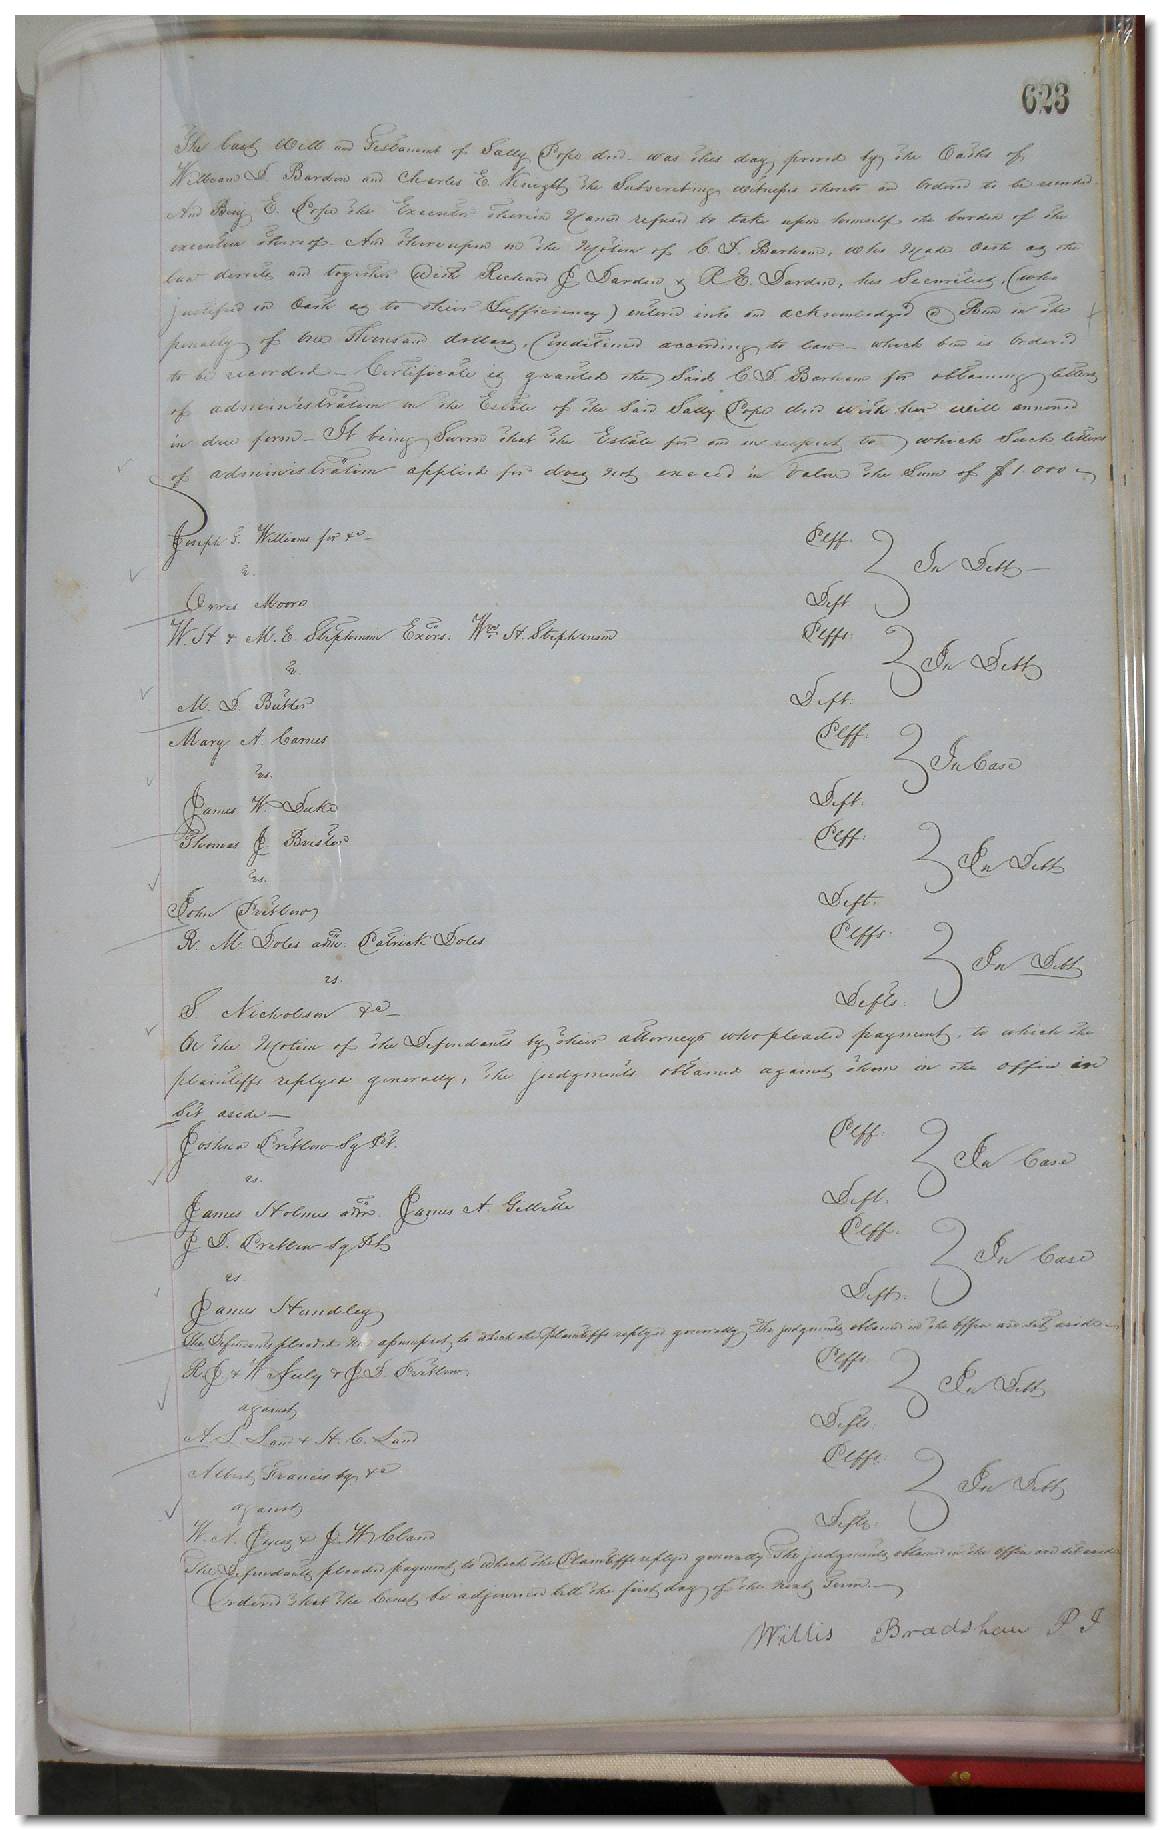 623
The Last Will and Testament of Sally Pope decd. was this day proved by the Oaths of
William D. Barham and Charles E. the Subscribing witnesses thereto and Ordered to be recorded.
And Benj. E. Pope the Executor therein Named refused to take upon himself the burden of the
execution thereof. And thereupon on the Motion of C. D. Barham, who Made Oath as the
law directs, and together With Richard J Darden & R. E. Darden, his Securities, (who
justified on Oath as to their Sufficiency) entered into and acknowledged a Bond in the
penalty of One Thousand dollars, Conditioned according to law - which bond is Ordered
to be recorded - Certificate is granted the Said C D. Barham for obtaining letters
of administration on the Estate of the Said Sally Pope decd with her will annexed
in due form - It being Sworn that the Estate for or in respect to which Such letters
of administration applied for does not exceed in Value the Sum of $1.000 -
Joseph G. Williams for &c - Plff.
v. In Debt -
Orris Moore Deft
W. H & M. E Stephenson Exors. Wm. H. Stephenson Plffs.
v. In Debt
M. D. Butler Deft.
Mary A. Carnes Plff.
vs. In Case
James W Duke Deft.
Thomas J. Brister Plff.
vs. In Debt
John Pretlow Deft.
R. M Doles admr. Patrick Doles Plffs.
vs. In Debt
S Nicholson &c - Defts.
On the Motion of the Defendants by their attorneys who pleaded payment, to which the
plaintiffs replyed generally, the judgments obtained against them in the office are
Set aside -
Joshua Pretlow Sg Pt. Plff.
vs. In Case
James Holmes admr. James A. Gillette Deft.
J D. Pretlow Sg Pt Plff.
vs In Case
James Hundley Deft.
The Defendants pleaded Non assumpsit, to which the Plaintiffs replyed generally The judgments obtained in the Office are Set aside -
R. J & W July & J D. Pretlow Plffs.
against In Debt
A. S. Land & H. C. Land Defts.
Albert Francis by &c Plffs.
against In Debt
W. A. Jones & J. W. Cland Defts.
The Defendants pleaded payment, to which the Plaintiffs replyed generally The judgments obtained in the Office are Set aside
Ordered that the Court be adjourned till the first day of the Next Term. -
Willis Bradshaw P J